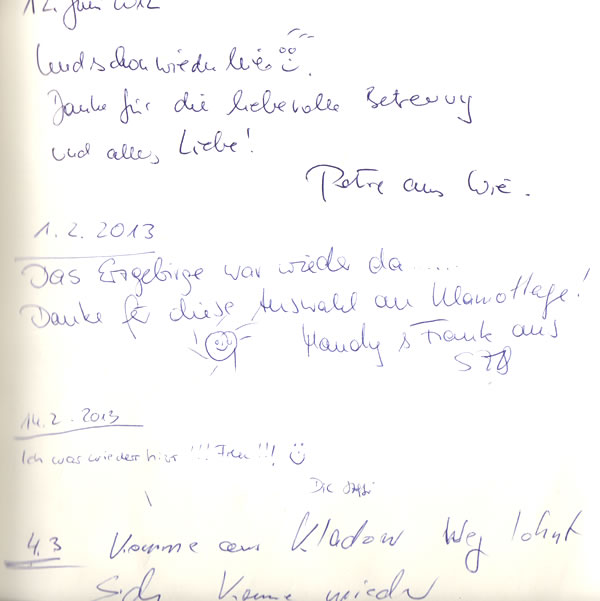 12. Juni 2012
Und schon wieder hier.
Danke für die liebevolle Betreuung
und alles Liebe!
Petra aus
1.2.2013
Das Erzgebirge war wieder da.....
Danke für diese Auswahl an Klamottage!
Mandy & Frank aus
14.2.2013
Ich was wieder hier !!! Freu !!!
Die
4.3 Komme aus Kladow Weg lohnt
sich Komme wieder